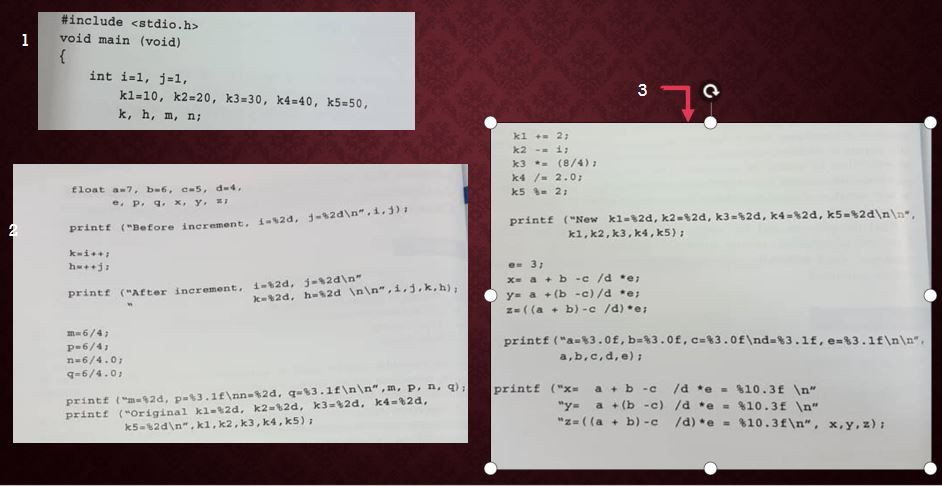 1
#include <stdio.h>
void main (void)
{
int i=1, j=1,
k1=10, k2=20, k3=30, k4=40, k5=50,
k, h, m, n;
2
float a=7, b=6, c=5, d=4,
e, p, q, x, y, z;
printf ("Before increment, i=%2d, j=%2d\n",i,j);
k=i++;
h=++j;
printf ("After increment, i=%2d, j=%2d\n"
" k=%2d, h=%2d \n\n",i,j,k,h);
m=6/4;
p=6/4;
n=6/4.0;
q=6/4.0;
printf ("m=%2d, p=%3.1f\nn=%2d, q=%3.1f\n\n",m, p, n, q);
printf ("Original k1=%2d, k2=%2d, k3=%2d, k4=%2d,
k5=%2d\n",k1,k2,k3,k4,k5);
3
k1 += 2;
k2 -= i;
k3 *= (8/4);
k4 /= 2.0;
k5 %= 2;
printf ("New k1=%2d,k2=%2d,k3=%2d,k4=%2d,k5=%2d\n\n",
k1,k2,k3,k4,k5);
e= 3;
x= a + b -c /d *e;
y= a +(b -c)/d *e;
z=((a + b)-c /d)*e;
printf("a=%3.0f,b=%3.0f,c=%3.0f\nd=%3.1f,e=%3.1f\n\n",
a,b,c,d,e);
printf ("x= a + b -c /d *e = %10.3f \n"
"y= a +(b -c) /d *e = %10.3f \n"
"z=((a + b)-c /d)*e = %10.3f\n", x,y,z);